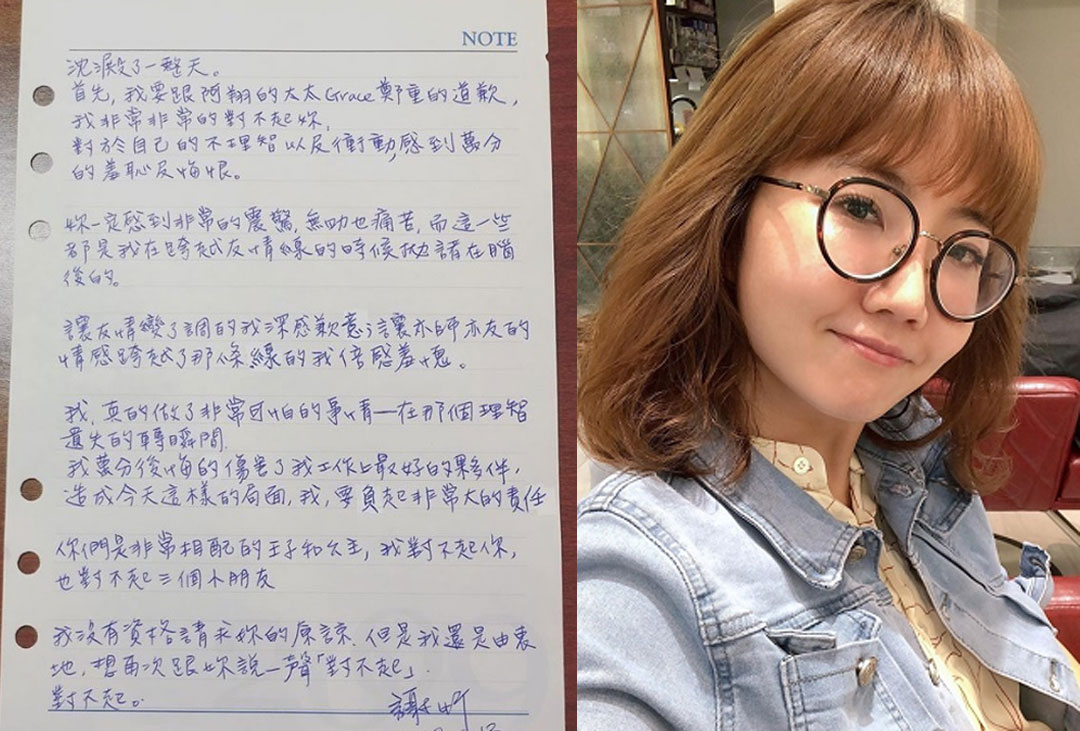 NOTE
沈澱了一整天。
首先，我要跟阿翔的太太Grace鄭重的道歉，
我非常非常的對不起妳，
對於自己的不理智以及衝動，感到萬分
的羞恥及悔恨。
妳一定感到非常的震驚，無助也痛苦，而這一些
都是我在跨越友情線的時候拋諸在腦
後的。
讓友情變了調的我深感歉意；讓亦師亦友的
情感跨越了那條線的我倍感羞愧。
我，真的做了非常可怕的事情—在那個理智
遺失的轉瞬間.
我萬分後悔的傷害了我工作上最好的夥伴，
造成今天這樣的局面，我，要負起非常大的責任
你們是非常相配的王子和公主，我對不起你，
也對不起三個小朋友
我沒有資格請求妳的原諒. 但是我還是由衷
地，想再次跟妳說一聲「對不起」.
對不起。
謝忻